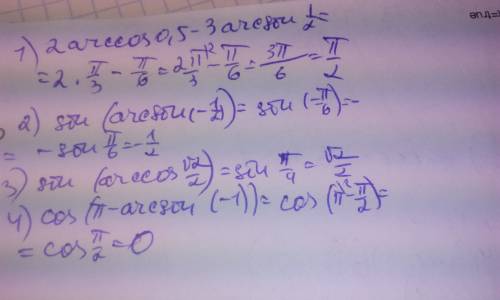 1) 2 arccos 0,5 - 3 arcsin 1/2 =
= 2 · π/3 - π/6 = 2π/3 - π/6 = 3π/6 = π/2
2) sin (arcsin (-1/2)) = sin (-π/6) = -
= - sin π/6 = - 1/2
3) sin (arccos √2/2) = sin π/4 = √2/2
4) cos (π - arcsin (-1)) = cos (π - π/2) =
= cos π/2 = 0